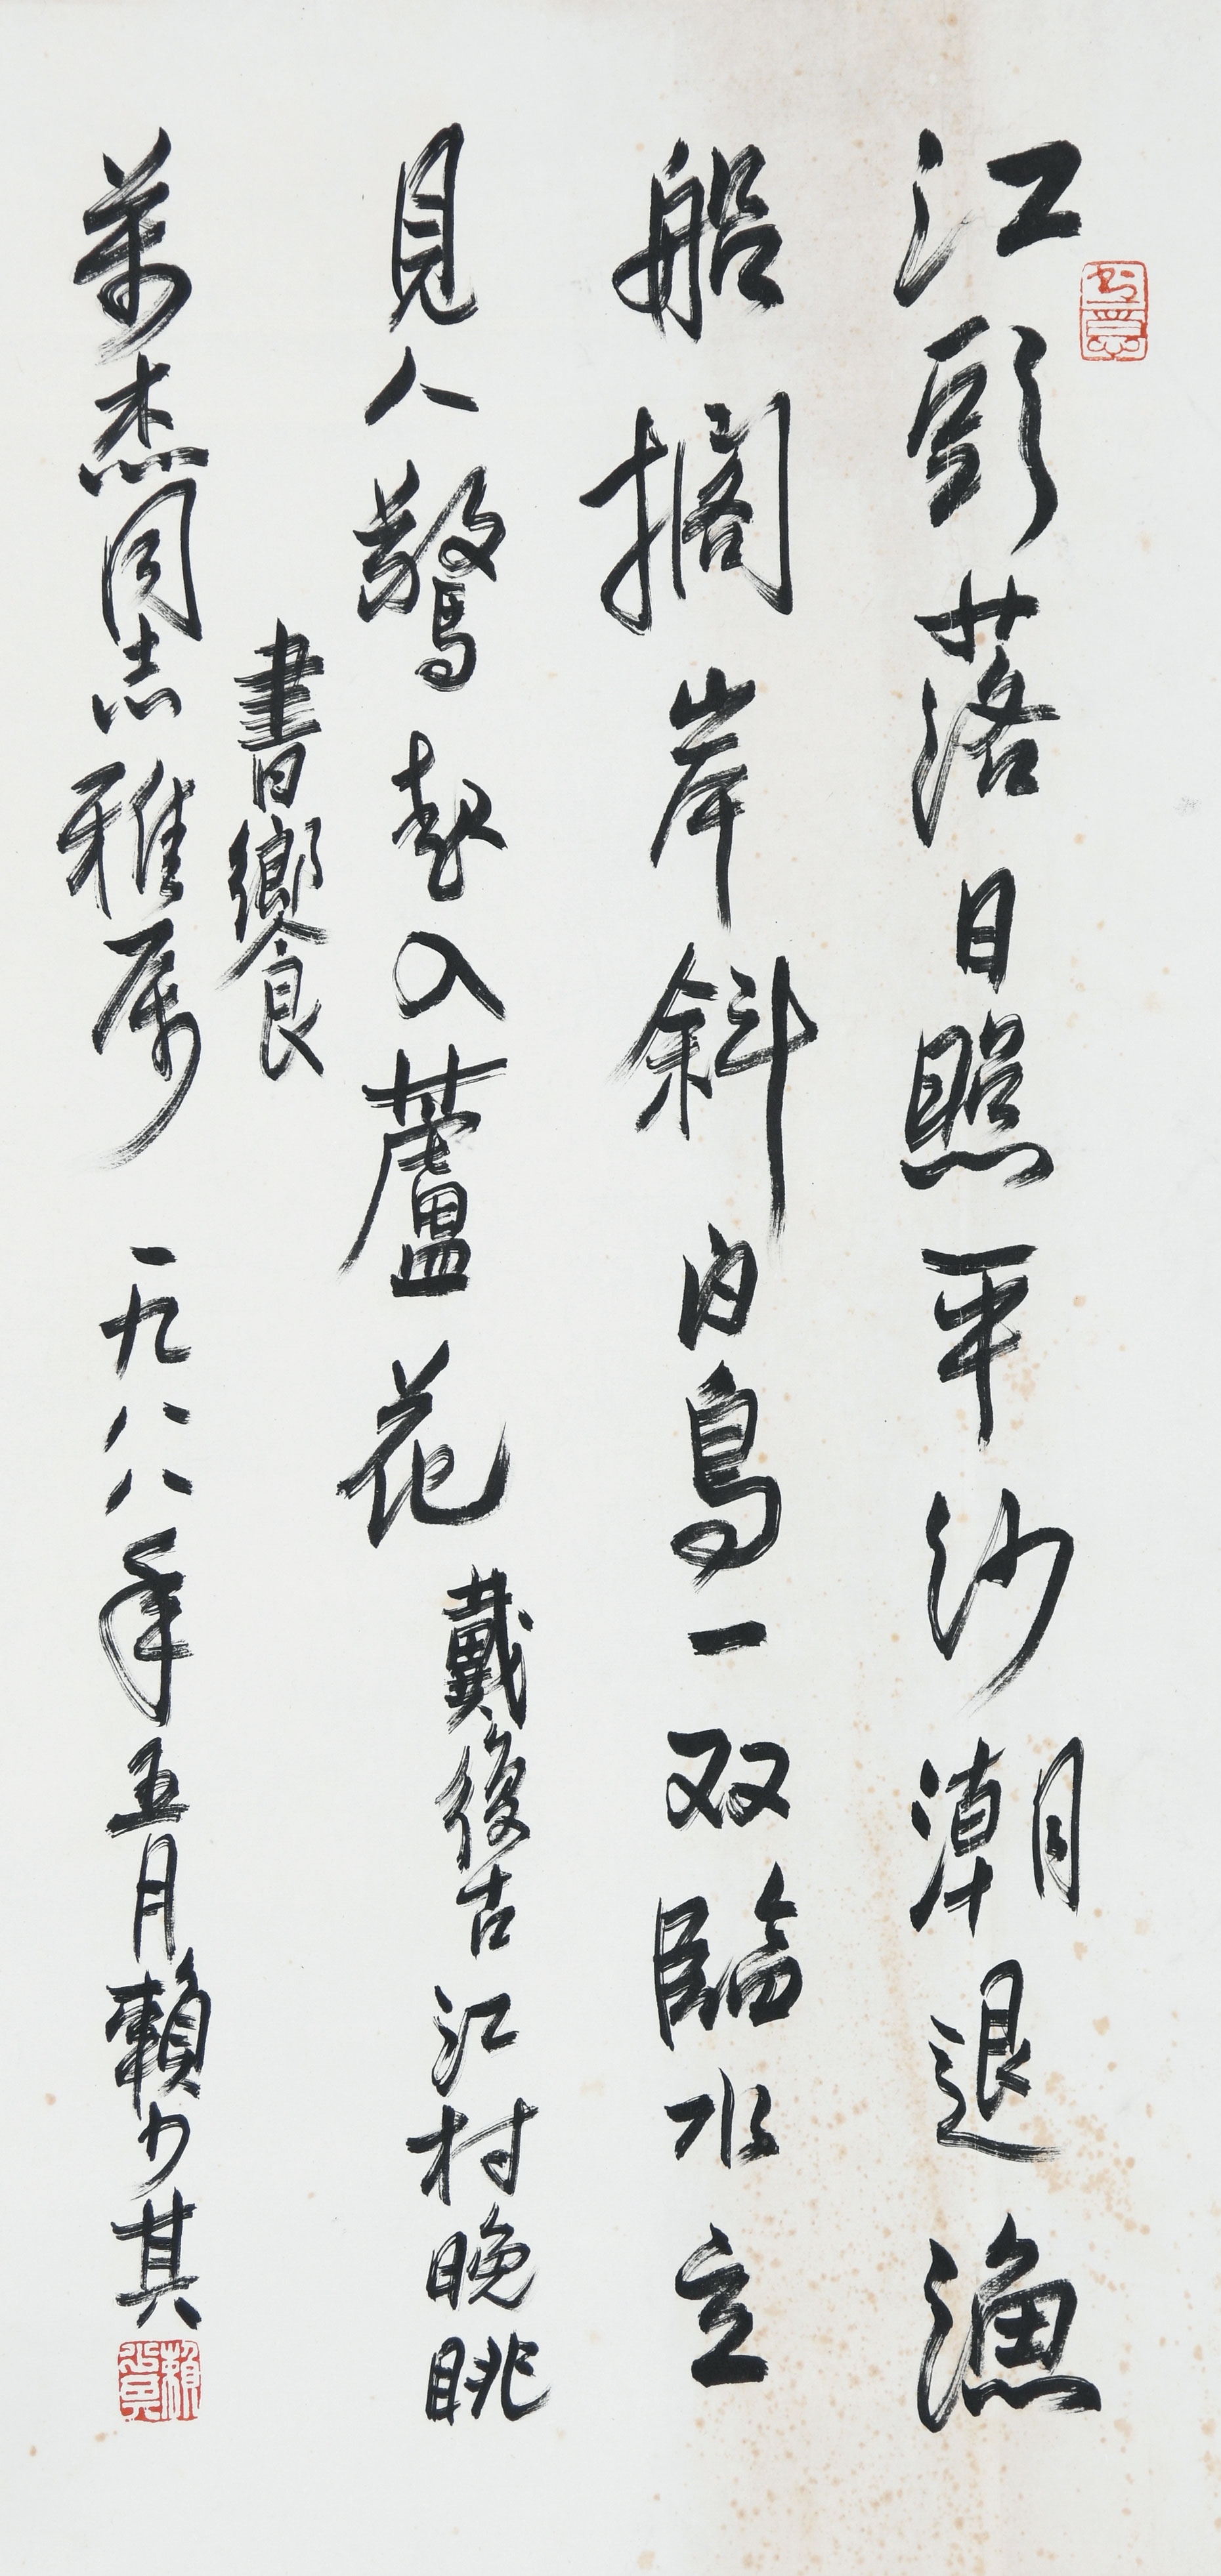 江頭落日照平沙潮退漁
船擱岸斜白鳥一双臨水立
見人驚起入蘆花 戴復古江村晚眺
書饗
萬杰同志雅属 一九八八年五月賴少其